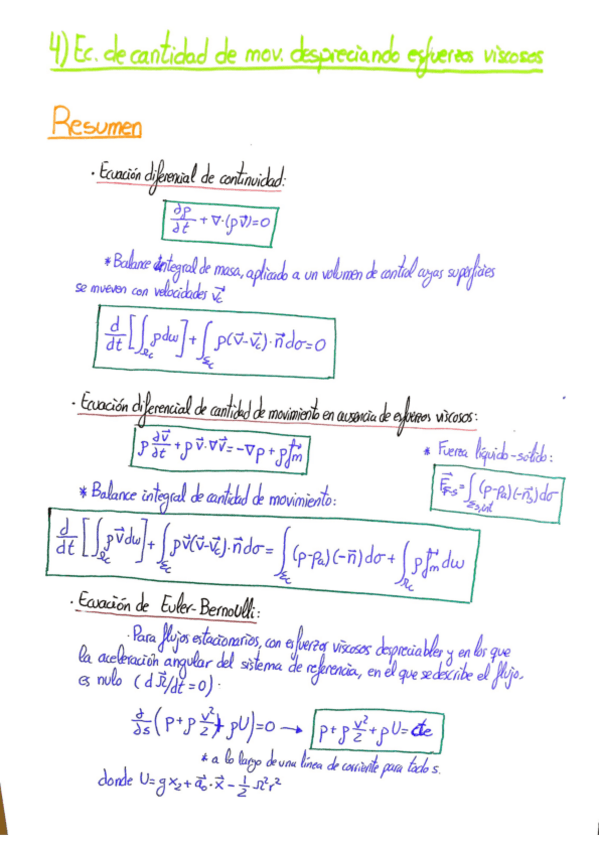 4) Ec. de cantidad de mov. despreciando esfuerzos viscosos
Resumen
· Ecuación diferencial de continuidad:
∂ρ/∂t + ∇·(ρv⃗)=0
* Balance integral de masa, aplicado a un volumen de control cuyas superficies
se mueven con velocidades v⃗c
d/dt [∫Ωc ρdω] + ∫Σc ρ(v⃗-v⃗c)·n⃗dσ=0
· Ecuación diferencial de cantidad de movimiento en ausencia de esfuerzos viscosos:
ρ ∂v⃗/∂t + ρv⃗·∇v⃗ = -∇p + ρf⃗m
* Fuerza líquido-sólido:
F⃗F-S = ∫Σs,int (p-pa)(-n⃗s)dσ
* Balance integral de cantidad de movimiento:
d/dt [∫Ωc ρv⃗dω] + ∫Σc ρv⃗(v⃗-v⃗c)·n⃗dσ = ∫Σc (p-pa)(-n⃗)dσ + ∫Ωc ρf⃗m dω
· Ecuación de Euler-Bernoulli:
· Para flujos estacionarios, con esfuerzos viscosos despreciables y en los que
la aceleración angular del sistema de referencia, en el que se describe el flujo,
es nulo (dΩ⃗/dt=0).
∂/∂s (p+ρ v²/2 + ρU)=0 → p+ρ v²/2 +ρU= cte
* a lo largo de una línea de corriente para todo s.
donde U=gx₂+a⃗₀·x⃗ - 1/2 Ω²r²